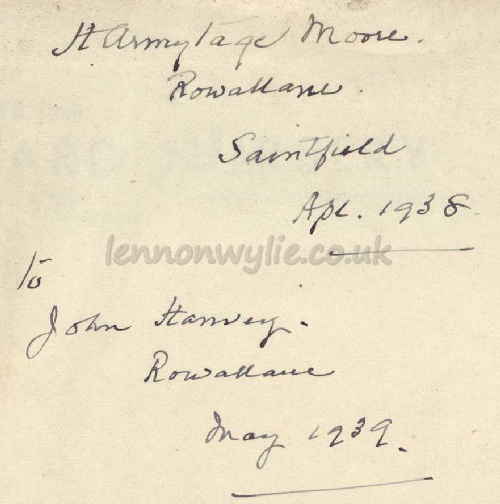 H Armytage Moore.
Rowallane.
Saintfield
Apl. 1938
lennonwylie.co.uk
To
John Hanvey.
Rowallane
May 1939.